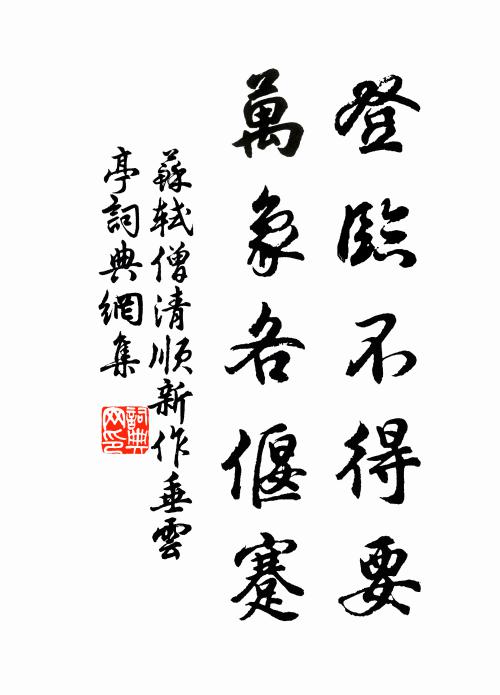 登臨不得要
萬象各偃蹇
蘇軾僧清順新作垂雲
亭詞典網集
詞典网印